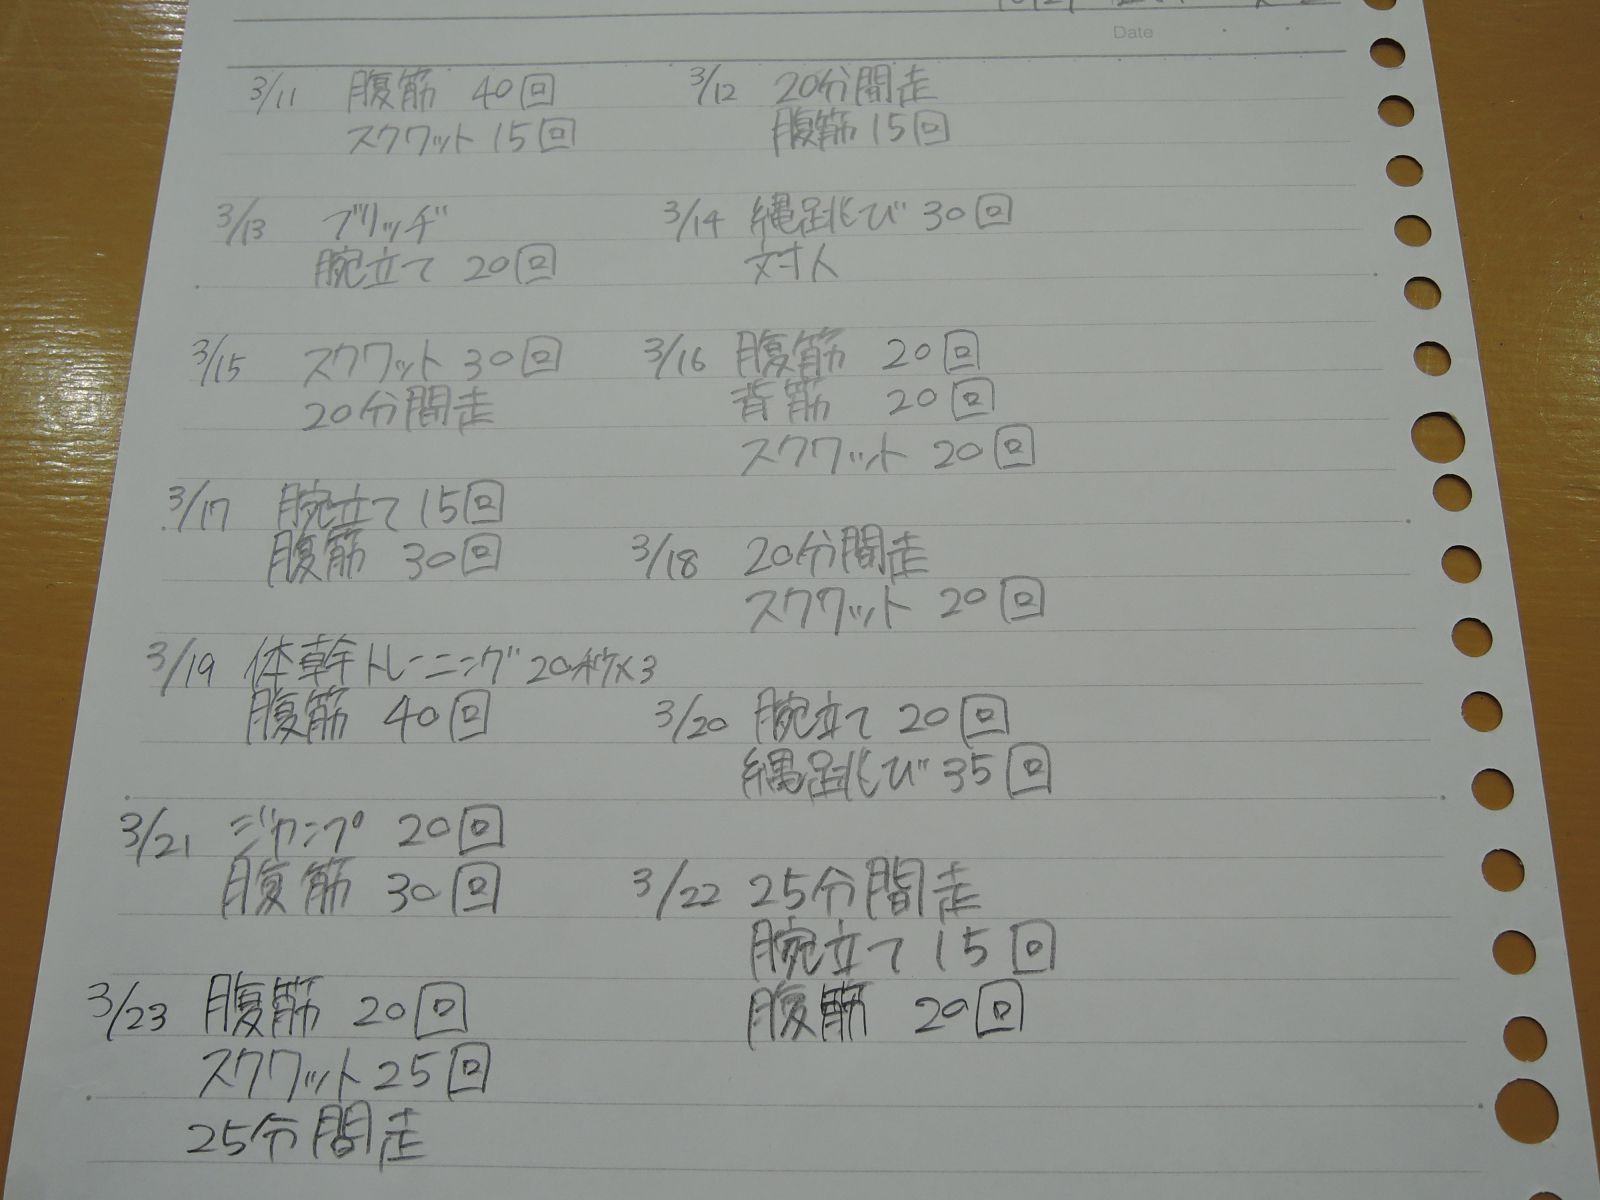 Date
3/11 腹筋 40回
スクワット 15回
3/12 20分間走
腹筋 15回
3/13 ブリッヂ
腕立て 20回
3/14 縄跳び 30回
対人
3/15 スクワット 30回
20分間走
3/16 腹筋 20回
背筋 20回
スクワット 20回
3/17 腕立て 15回
腹筋 30回
3/18 20分間走
スクワット 20回
3/19 体幹トレーニング 20秒×3
腹筋 40回
3/20 腕立て 20回
縄跳び 35回
3/21 ジャンプ 20回
腹筋 30回
3/22 25分間走
腕立て 15回
腹筋 20回
3/23 腹筋 20回
スクワット 25回
25分間走